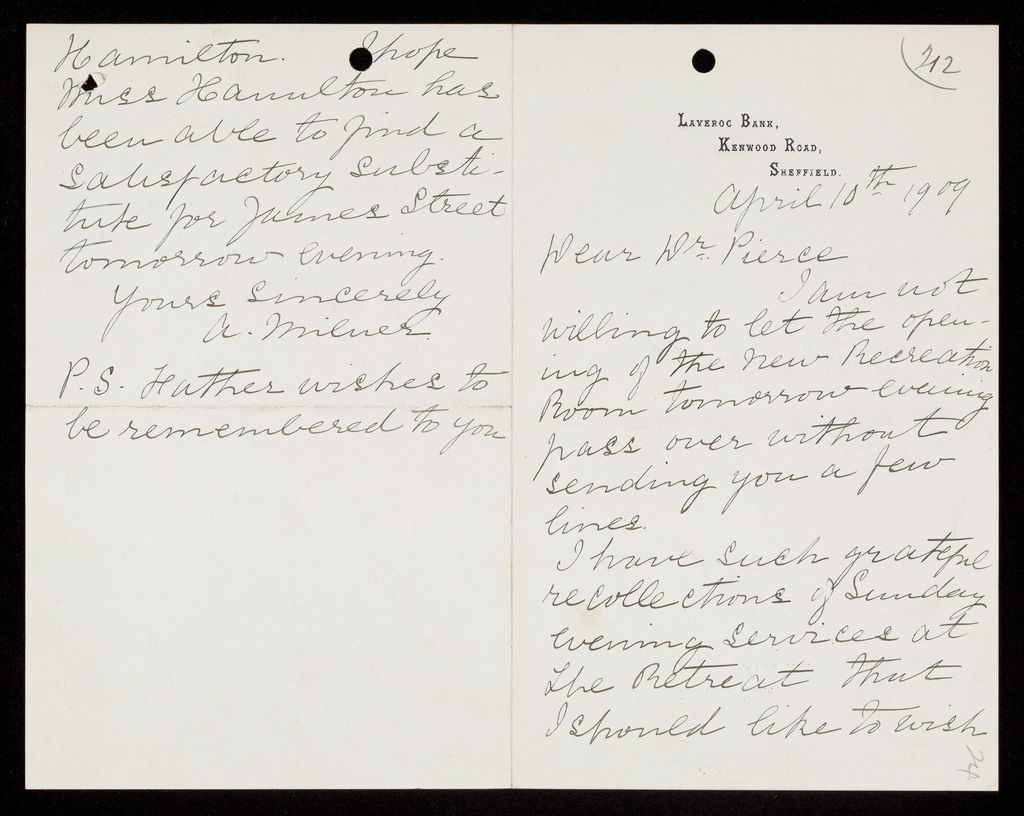 212
Laveroc Bank,
Kenwood Road,
Sheffield.
April 10th 1909
Dear Dr. Pierce
I am not
willing to let the open-
ing of the new Recreation
Room tomorrow evening
pass over without
sending you a few
lines.
I have such grateful
recollections of Sunday
evening services at
the Retreat that
I should like to wish
Hamilton. I hope
Miss Hamilton has
been able to find a
satisfactory substi-
tute for James Street
tomorrow evening.
Yours sincerely
A. Milner.
P.S. Father wishes to
be remembered to you